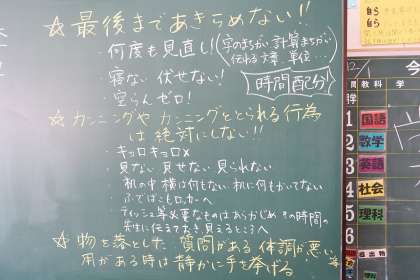 ☆最後まであきらめない!!
・何度も見直し!(字のまちがい 計算まちがい
伝わる文章、単位…
・寝ない 伏せない!
・空らんゼロ! 時間配分!
☆カンニングや カンニングととられる行為
は 絶対にしない!!
・キョロキョロ×
・見ない 見せない 見られない
・机の中 横は何もない 机に何もかいてない
ふでばこもロッカーへ
・ティッシュ等必要なものはあらかじめ その時間の
先生に伝えておき見えるところへ
☆物を落とした 質問がある 体調が悪い 等
用がある時は 静かに手を挙げる!
自ら
自ら
12/1
今
教科
学
1 国語
2 数学
3 英語
4 社会
5 理科
6
提出物